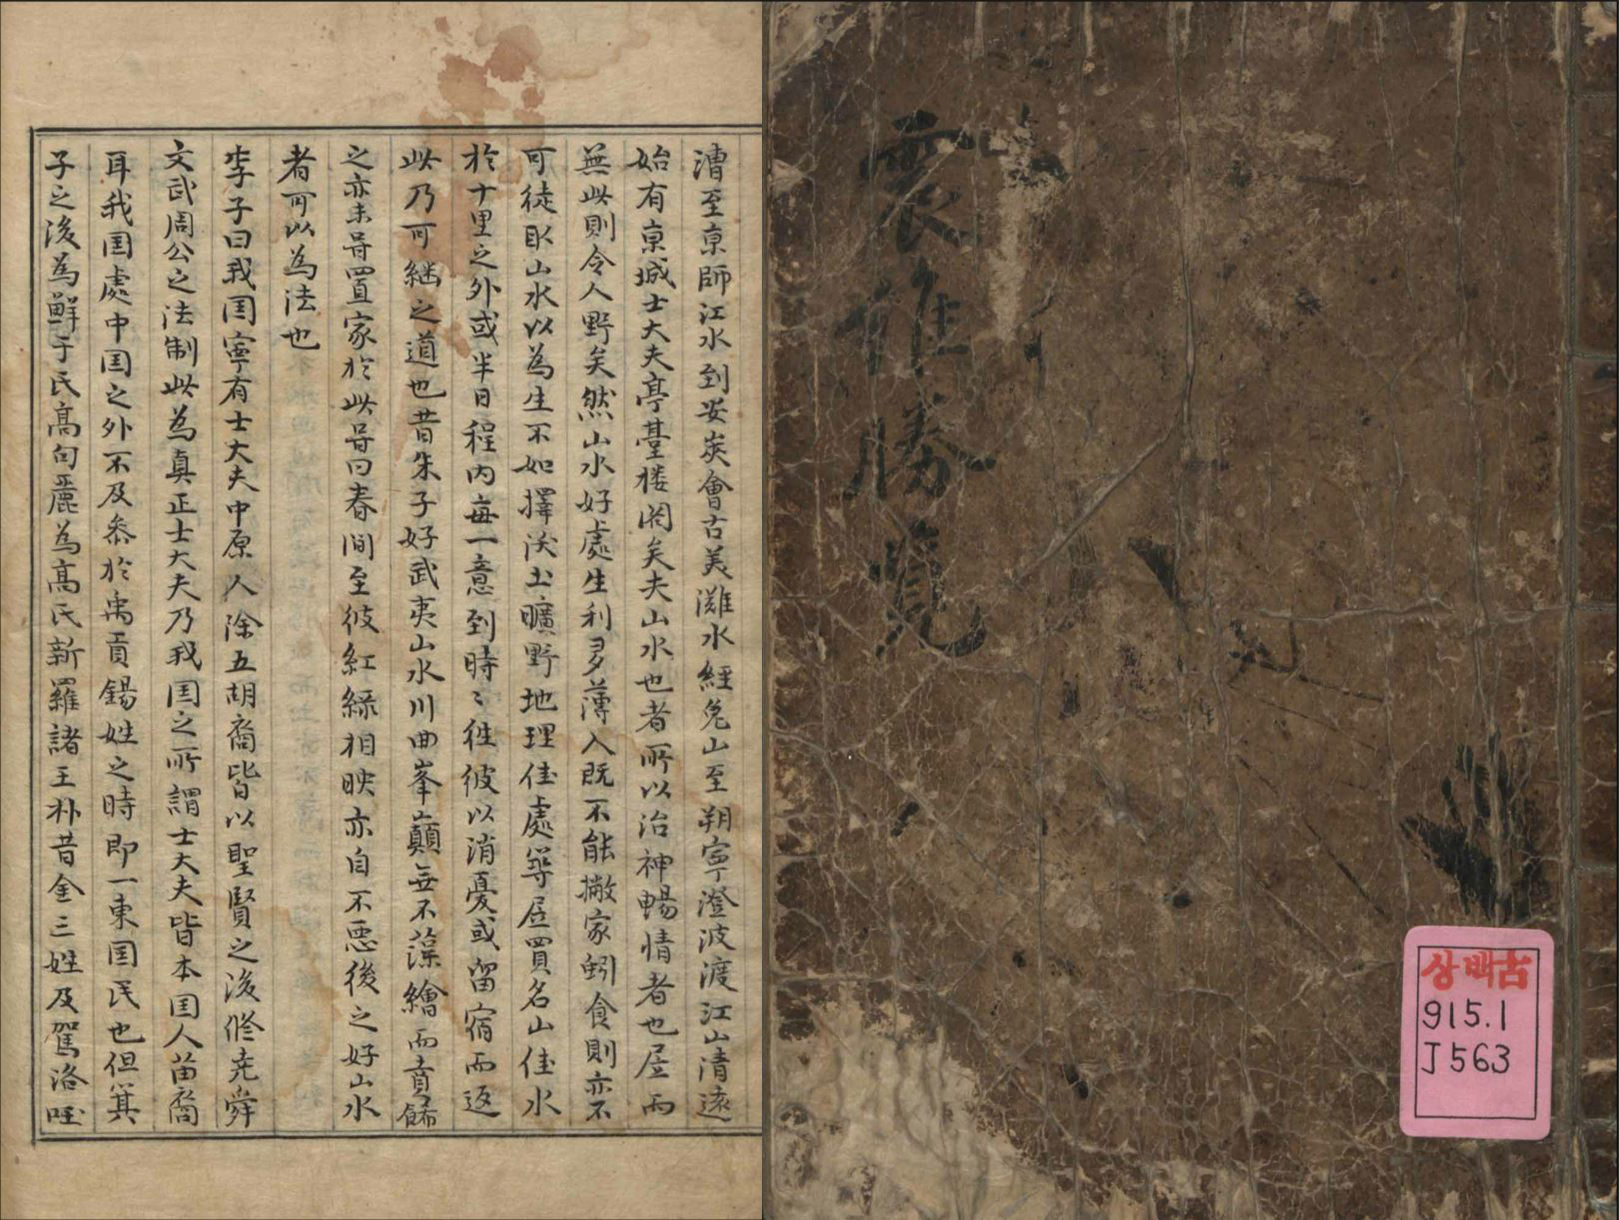 漕至京師江水到安峽會古美灘水經兔山至朔寧澄波渡江山清遠
始有京城士大夫亭臺楼閣矣夫山水也者所以治神暢情者也居而
無此則令人野矣然山水好處生利多薄人既不能撇家蚓食則亦不
可徒取山水以為生不如擇沃土曠野地理佳處築居買名山佳水
於十里之外或半日程内每一意到時〻徃彼以消憂或留宿而返
此乃可継之道也昔朱子好武夷山水川曲峯巔無不藻繪而賁餙
之亦未甞置家於此甞曰春間至彼紅綠相映亦自不悪後之好山水
者可以為法也
李子曰我国寧有士大夫中原人除五胡裔皆以聖賢之後修尭舜
文武周公之法制此為真正士大夫乃我国之所謂士大夫皆本国人苗裔
耳我国處中国之外不及叅於禹貢錫姓之時即一東国民也但箕
子之後為鮮于氏高句麗為高氏新羅諸王朴昔金三姓及駕洛
勝覧
상백古
915.1
J563